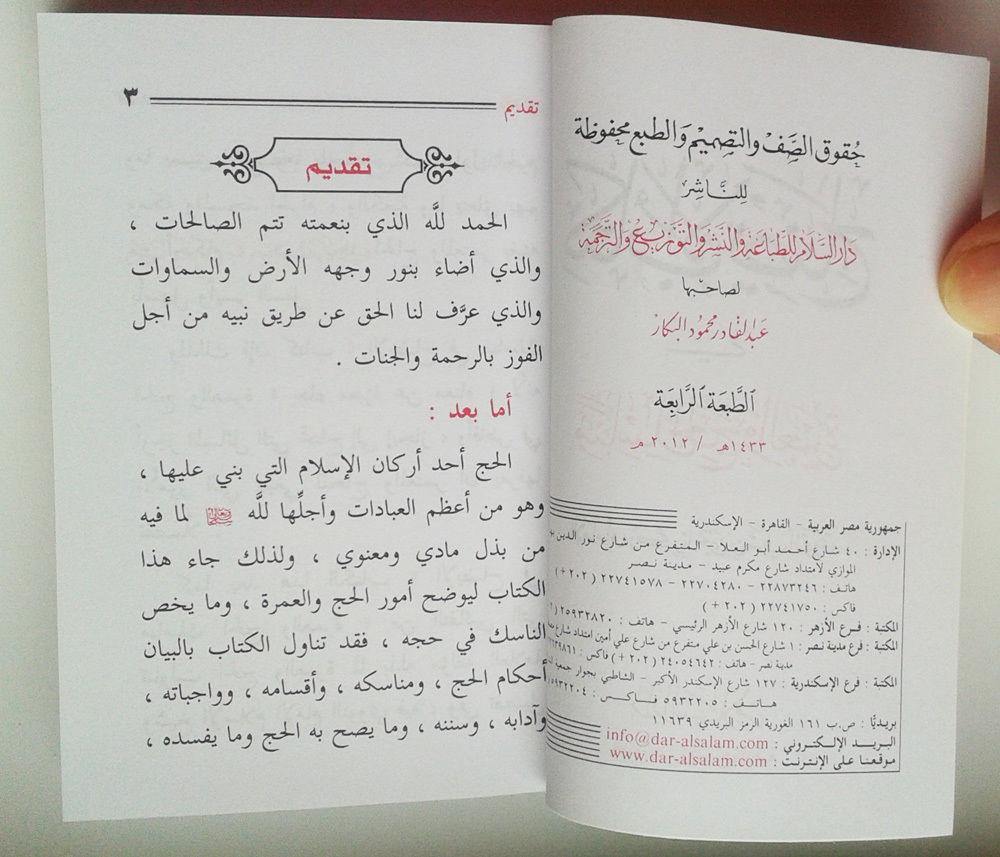 حقوق الصف والتصميم والطبع محفوظة
للناشر
دار السلام للطباعة والنشر والتوزيع والترجمة
لصاحبها
عبدالقادر محمود البكار
الطبعة الرابعة
١٤٣٣هـ / ٢٠١٢ م
جمهورية مصر العربية - القاهرة - الإسكندرية
الإدارة : ٤٠ شارع أحمد أبو العلا - المتفرع من شارع نور الدين
الموازي لامتداد شارع مكرم عبيد - مدينة نصر
هاتف : ٢٢٨٧٣٢٤٦ - ٢٢٧٠٤٢٨٠ - ٢٢٧٤١٥٧٨ ( ٢٠٢ + )
فاكس : ٢٢٧٤١٧٥٠ ( ٢٠٢ + )
المكتبة : فرع الأزهر : ١٢٠ شارع الأزهر الرئيسي - هاتف : ٢٥٩٣٢٨٢٠
المكتبة : فرع مدينة نصر : ١ شارع الحسن بن علي متفرع من شارع علي أمين امتداد شارع
مدينة نصر - هاتف : ٢٤٠٥٤٦٤٢ ( ٢٠٢ + ) فاكس :
المكتبة : فرع الإسكندرية : ١٢٧ شارع الإسكندر الأكبر - الشاطبي بجوار جمعية
هاتف : ٥٩٣٢٢٠٥ فاكس : ٥٩٣٢٢٠٤
بريديًّا : ص.ب ١٦١ الغورية الرمز البريدي ١١٦٣٩
البريد الإلكتروني : info@dar-alsalam.com
موقعنا على الإنترنت : www.dar-alsalam.com
تقديم ٣
تقديم
الحمد للَّه الذي بنعمته تتم الصالحات ،
والذي أضاء بنور وجهه الأرض والسماوات
والذي عرَّف لنا الحق عن طريق نبيه من أجل
الفوز بالرحمة والجنات .
أما بعد :
الحج أحد أركان الإسلام التي بني عليها ،
وهو من أعظم العبادات وأجلِّها للَّه لما فيه
من بذل مادي ومعنوي ، ولذلك جاء هذا
الكتاب ليوضح أمور الحج والعمرة ، وما يخص
الناسك في حجه ، فقد تناول الكتاب بالبيان
أحكام الحج ، ومناسكه ، وأقسامه ، وواجباته ،
وآدابه ، وسننه ، وما يصح به الحج وما يفسده ،